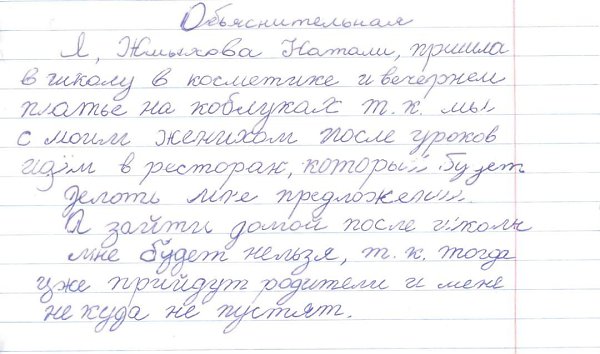 Объяснительная
Я, Жмыхова Натали, пришла
в школу в косметике и вечернем
платье на коблуках т.к. мы
с моим женихом после уроков
идём в ресторан, который будет
делоть мне предложении.
А зайти домой после школы
мне будет нельзя, т.к. тогда
уже прийдут родители и меня
не куда не пустят.